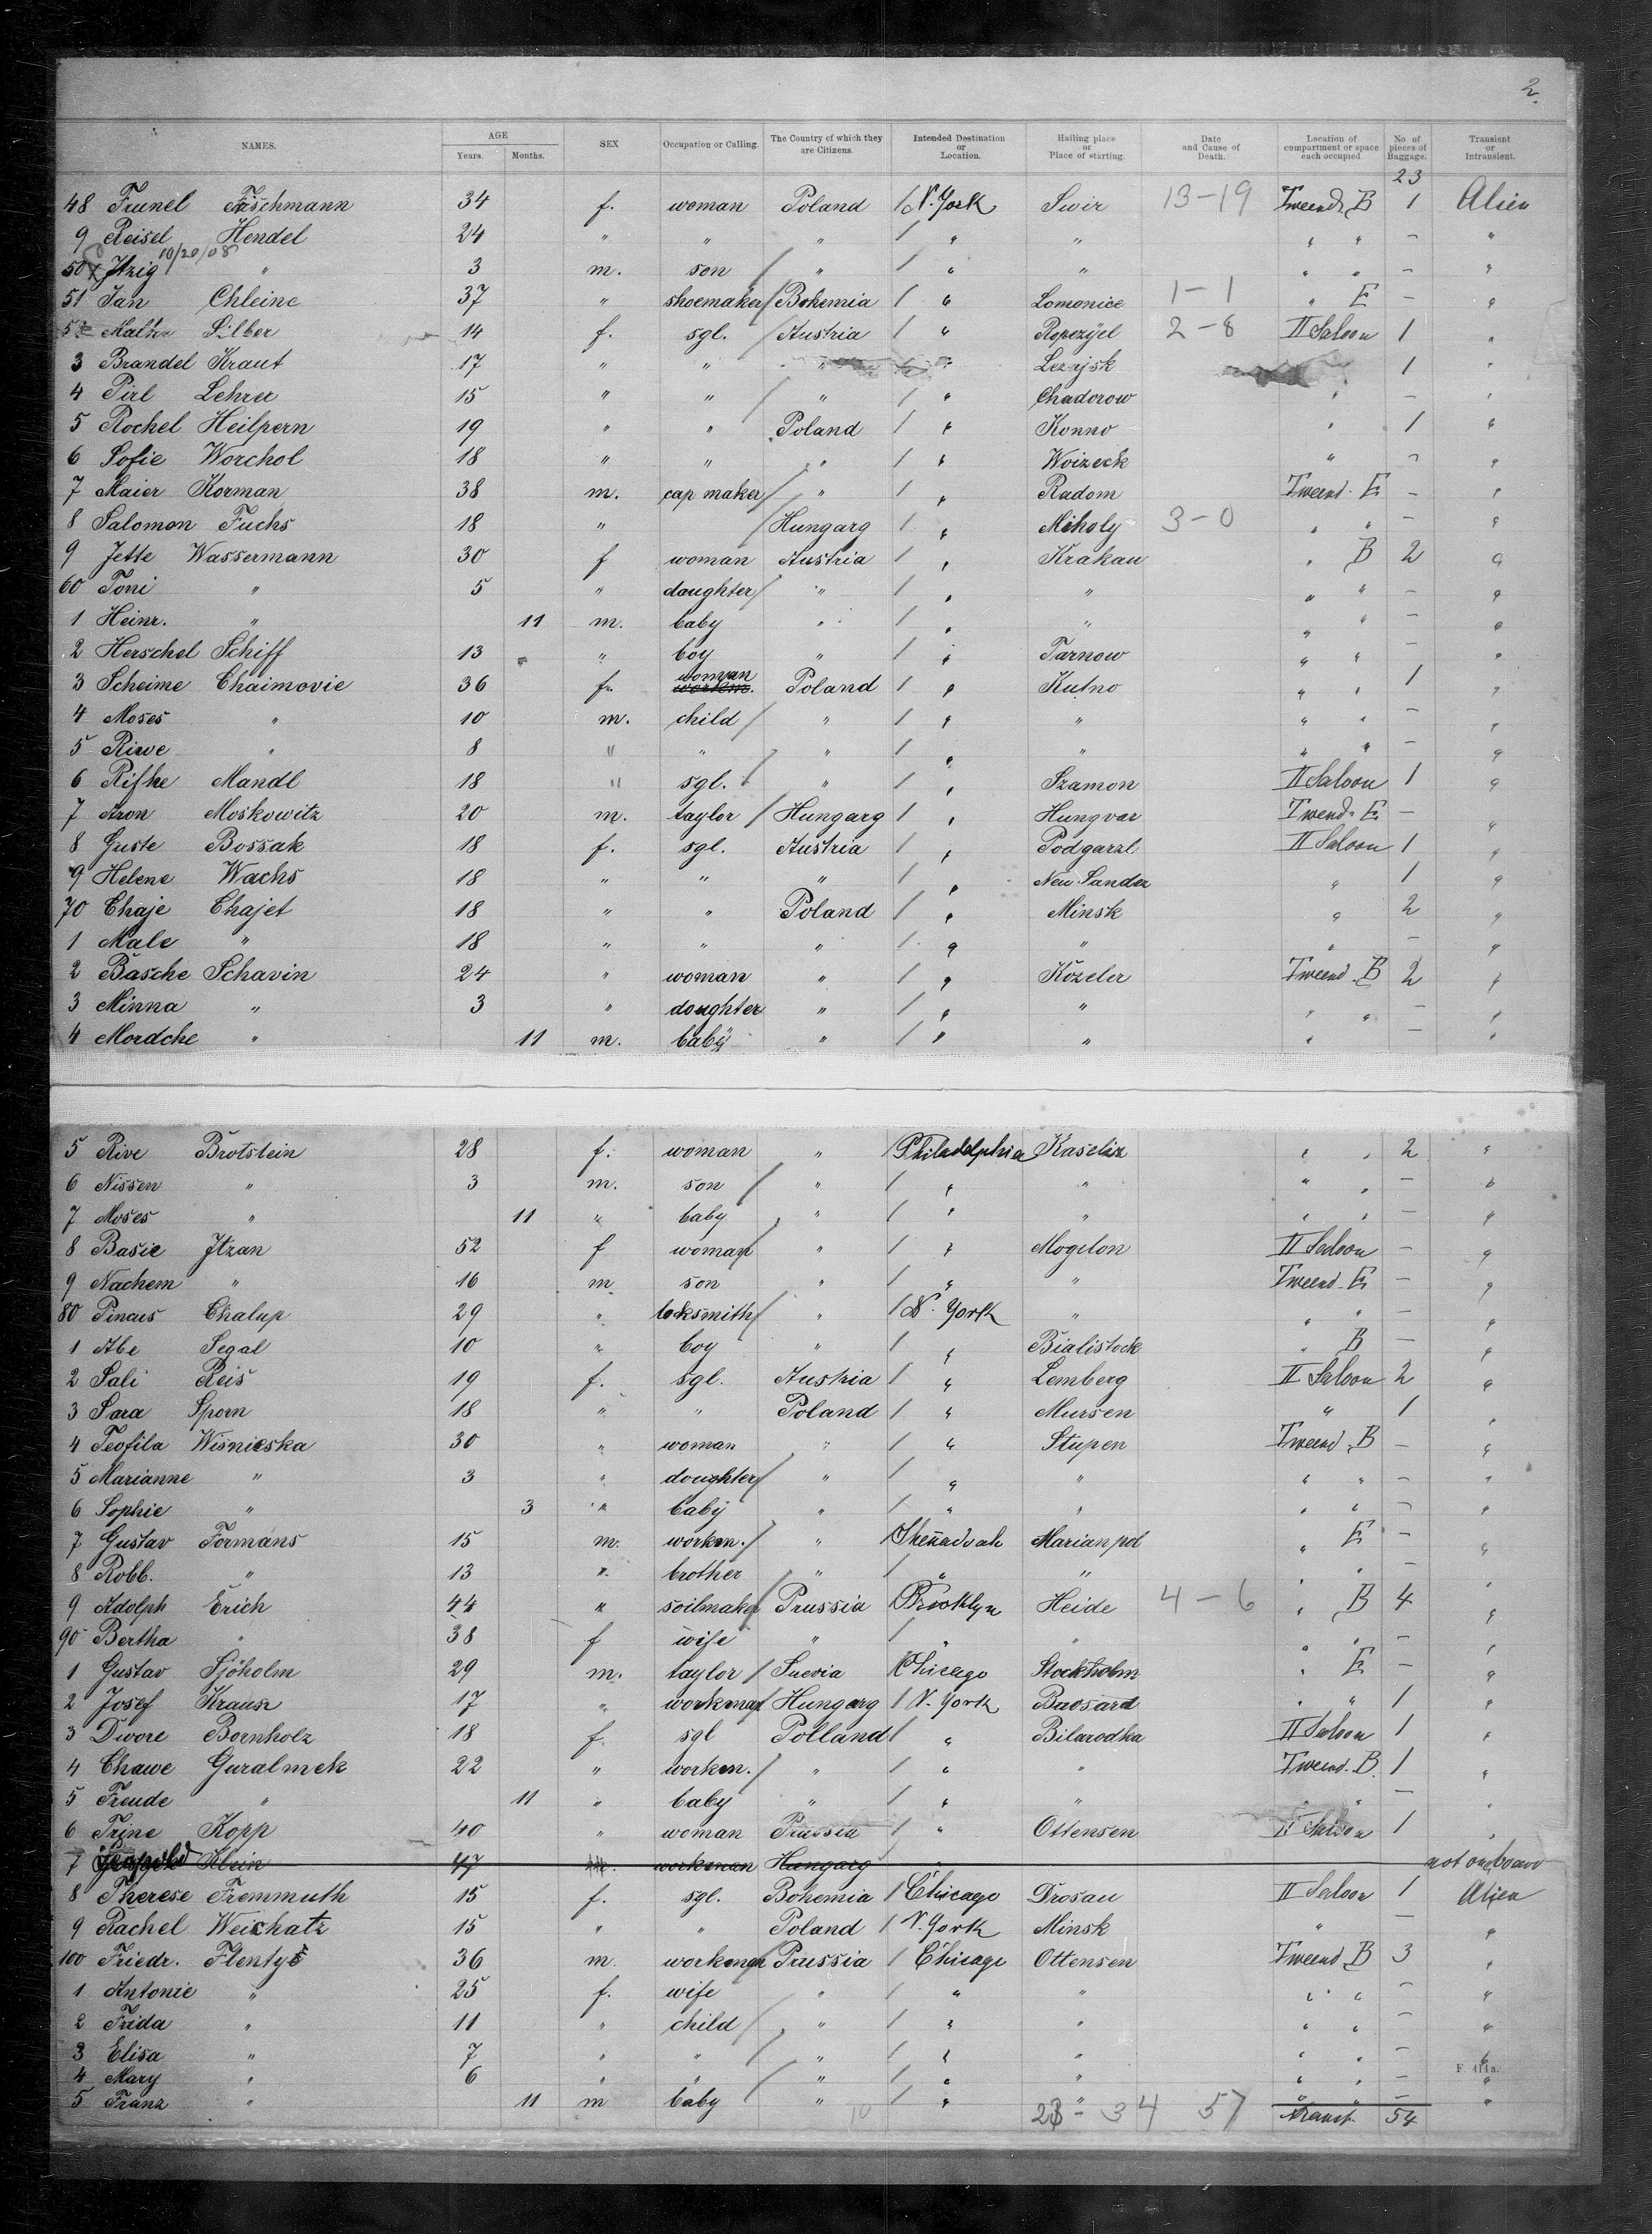 2.
NAMES. AGE Years. Months. SEX Occupation or Calling. The Country of which they are Citizens. Intended Destination or Location. Hailing place or Place of starting. Date and Cause of Death. Location of compartment or space each occupied No. of pieces of Baggage. Transient or Intransient.
23
48 Frunel Fischmann 34 f. woman Poland / N. York Swir 13-19 Tweend. B 1 Alien
9 Reisel Hendel 24 " " " / " " " " — "
10/20/08
50 Itzig " 3 m. son / " / " " " " — "
51 Jan Chleine 37 " shoemaker / Bohemia / " Lomonice 1-1 " E — "
52 Malke Silber 14 f. sgl. / Austria / " Ropczyel 2-8 II Saloon 1 "
3 Brandel Kraut 17 " " " " Lezajsk 1 "
4 Pirl Lehrer 15 " " / " / " Chadorow " — "
5 Rochel Heilpern 19 " " Poland / " Konno " 1 "
6 Sofie Worchol 18 " " " / " Woizeck " — "
7 Maier Korman 38 m. cap maker / " / " Radom Tweend. E — "
8 Salomon Fuchs 18 " / Hungarg / " Miholy 3-0 " " — "
9 Jette Wassermann 30 f woman Austria / " Krakau " B 2 "
60 Toni " 5 " daughter / " / " " " " — "
1 Heinr. " 11 m. baby " / " " " " — "
2 Herschel Schiff 13 " boy " / " Tarnow " " — "
3 Scheime Chaimovic 36 f. woman Poland / " Kutno " " 1 "
4 Moses " 10 m. child / " / " " " " — "
5 Riwe " 8 " " / " / " " " " — "
6 Rifke Mandl 18 " sgl. / " / " Szamon II Saloon 1 "
7 Aron Moskowitz 20 m. taylor / Hungarg / " Hungvar Tweend. E — "
8 Guste Bossak 18 f. sgl. Austria / " Podgarzl II Saloon 1 "
9 Helene Wachs 18 " " " / " Neu Sandez " 1 "
70 Chaje Chajet 18 " " Poland / " Minsk " 2 "
1 Male " 18 " " " / " " " — "
2 Basche Schavin 24 " woman " / " Kozeler Tweend. B 2 "
3 Minna " 3 " doughter " / " " " " — "
4 Mordche " 11 m. baby " / " " " — "
5 Rive Brotstein 28 f. woman " Philadelphia Kaseliz " " 2 "
6 Nissen " 3 m. son / " / " " " " — "
7 Moses " 11 " baby / " / " " " " — "
8 Basie Itzan 52 f woman " / " Mogilon II Saloon — "
9 Nachem " 16 m son " / " " Tweend. E — "
80 Pincus Chalup 29 " locksmith / " / N. York " " " — "
1 Abe Segal 10 " boy " / " Bialistock " B — "
2 Sali Reis 19 f. sgl. Austria / " Lemberg II Saloon 2 "
3 Sara Sporn 18 " " Poland / " Mursen " 1 "
4 Teofila Wisnieska 30 " woman " / " Stupen Tweend. B — "
5 Marianne " 3 " doughter / " / " " " " — "
6 Sophie " 3 " baby " / " " " " — "
7 Gustav Formans 15 m. workm. / " / Shenadoah Marianpol " E — "
8 Robb. " 13 " brother " / " " " — "
9 Adolph Erich 44 " soilmaker / Prussia Brooklyn Heide 4-6 " B 4 "
90 Bertha " 38 f wife " / " " " " — "
1 Gustav Sjöholm 29 m. taylor / Suevia / Chicago Stockholm " E — "
2 Josef Krausz 17 " workman / Hungarg / N. York Baosard " " 1 "
3 Dwore Bornholz 18 f. sgl Polland / " Bilarodka II Saloon 1 "
4 Chawe Guralmek 22 " workm. / " / " " Tweend. B. 1 "
5 Freude " 11 " baby " / " " " " — "
6 Trine Kopp 40 " woman Prussia / " Ottensen II Saloon 1 "
7 Leopold Klein 47 m. workman Hungarg not on board
8 Therese Fremmuth 15 f. sgl. Bohemia / Chicago Drosau II Saloon 1 Alien
9 Rachel Weichatz 15 " " Poland / N. York Minsk " — "
100 Friedr. Flentye 36 m. workman / Prussia / Chicago Ottensen Tweend B 3 "
1 Antonie " 25 f. wife " / " " " " — "
2 Frida " 11 " child / " / " " " " — "
3 Elisa " 7 " " / " / " " " " — "
F. 411a.
4 Mary " 6 " " / " / " " " " — "
5 Franz " 11 m baby / " / " " " " — "
10 23-34 57 transt. 54